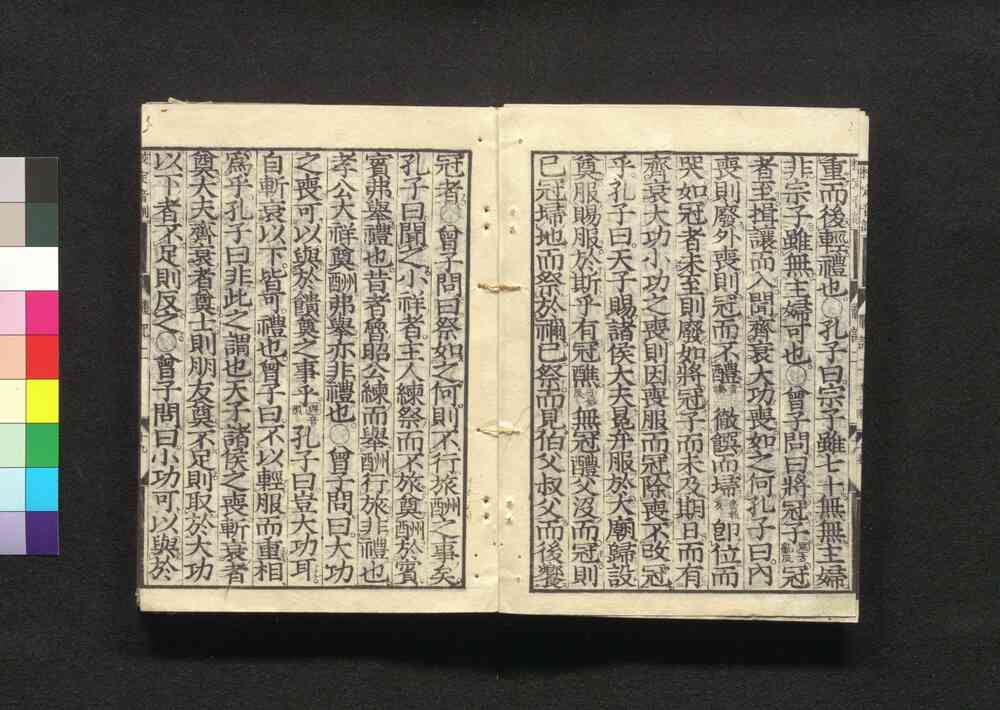 重而後輕禮也 孔子曰宗子雖七十無無主婦
非宗子雖無主婦可也 曾子問曰將冠子 冠
者至揖讓而入聞齊衰大功喪如之何孔子曰內
喪則廢外喪則冠而不醴 徹饌而埽 卽位而
哭如冠者未至則廢如將冠子而未及期日而有
齊衰大功小功之喪則因喪服而冠除喪不改冠
乎孔子曰天子賜諸侯大夫冕弁服於大廟歸設
奠服賜服於斯乎有冠醮 無冠醴父沒而冠則
已冠埽地而祭於禰已祭而見伯父叔父而後饗
冠者 曾子問曰祭如之何則不行旅酬之事矣
孔子曰聞之小祥者主人練祭而不旅奠酬於賓
賓弗舉禮也昔者魯昭公練而舉酬行旅非禮也
孝公大祥奠酬弗舉亦非禮也 曾子問曰大功
之喪可以與於饋奠之事乎 孔子曰豈大功耳
自斬衰以下皆可禮也曾子曰不以輕服而重相
爲乎孔子曰非此之謂也天子諸侯之喪斬衰者
奠大夫齊衰者奠士則朋友奠不足則取於大功
以下者不足則反之 曾子問曰小功可以與於